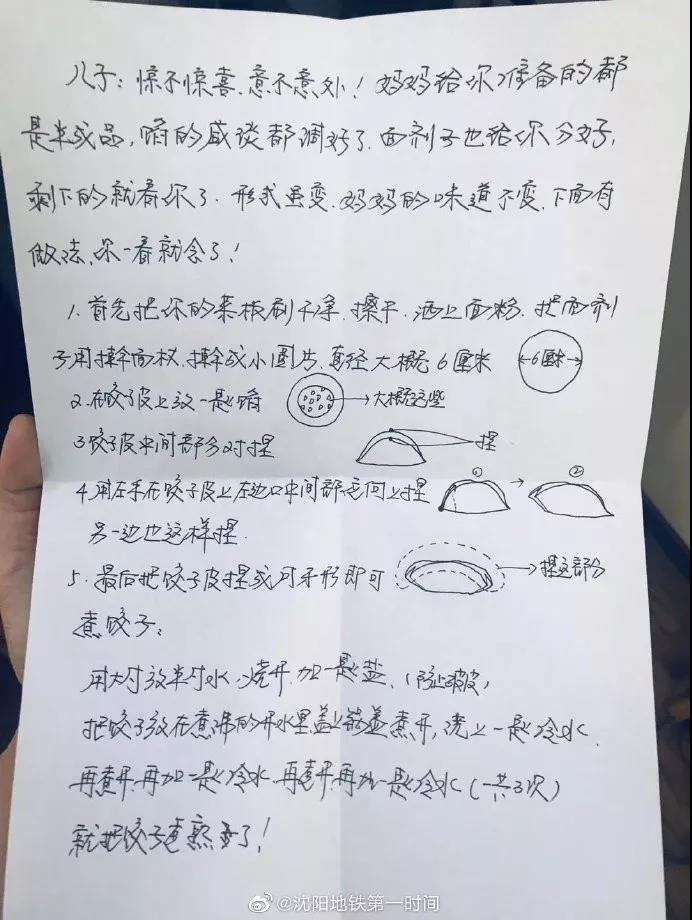 儿子:惊不惊喜、意不意外!妈妈给你准备的都
是半成品,馅的咸谈都调好了.面剂子也给你分好,
剩下的就看你了.形式虽变.妈妈的味道不变.下面有
做法、你一看就会了!
1.首先把你的菜板刷干净.擦干.洒上面粉.把面剂
子用擀面杖.擀成小圆片.直径大概6厘米
6厘米
2.在饺子皮上放一些馅
大概这些
3饺子皮中间部分对捏
捏
4.用左手在饺子皮上左边口中间部位向上捏
① ②
另一边也这样捏.
5.最后把饺子皮捏成月牙形即可
捏这部分
煮饺子:
用大勺放半勺水、烧开.加一些盐、(防止破皮)
把饺子放在煮沸的开水里盖上锅盖煮开,浇上一些冷水.
再煮开.再加一些冷水.再煮开.再加一些冷水(一共3次)
就把饺子煮熟了!
@沈阳地铁第一时间